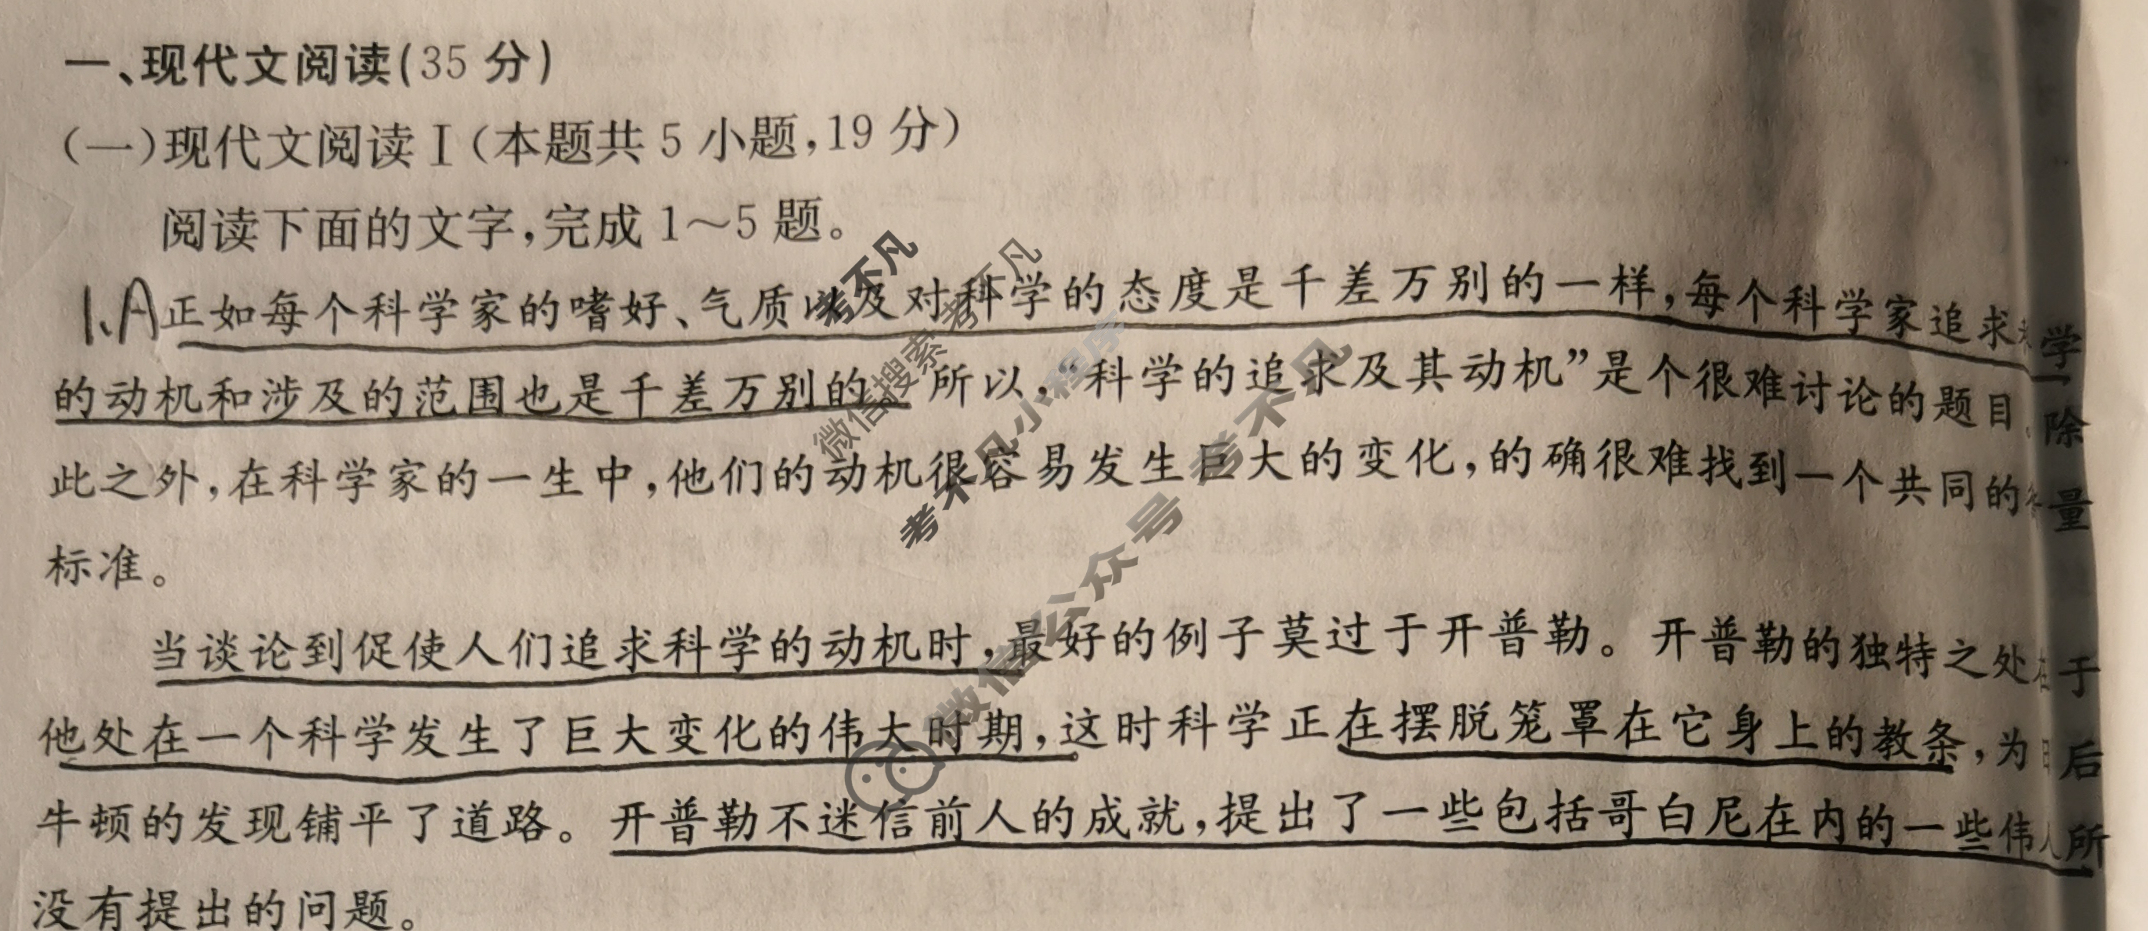 一、现代文阅读(35 分)
(一)现代文阅读Ⅰ(本题共 5 小题,19 分)
阅读下面的文字,完成 1~5 题。
1.A正如每个科学家的嗜好、气质以及对科学的态度是千差万别的一样,每个科学家追求科学
的动机和涉及的范围也是千差万别的。所以,“科学的追求及其动机”是个很难讨论的题目。除
此之外,在科学家的一生中,他们的动机很容易发生巨大的变化,的确很难找到一个共同的衡量
标准。
当谈论到促使人们追求科学的动机时,最好的例子莫过于开普勒。开普勒的独特之处在于
他处在一个科学发生了巨大变化的伟大时期,这时科学正在摆脱笼罩在它身上的教条,为日后
牛顿的发现铺平了道路。开普勒不迷信前人的成就,提出了一些包括哥白尼在内的一些伟人所
没有提出的问题。
考不凡
微信搜索 考不凡
考不凡小程序
微信公众号 考不凡